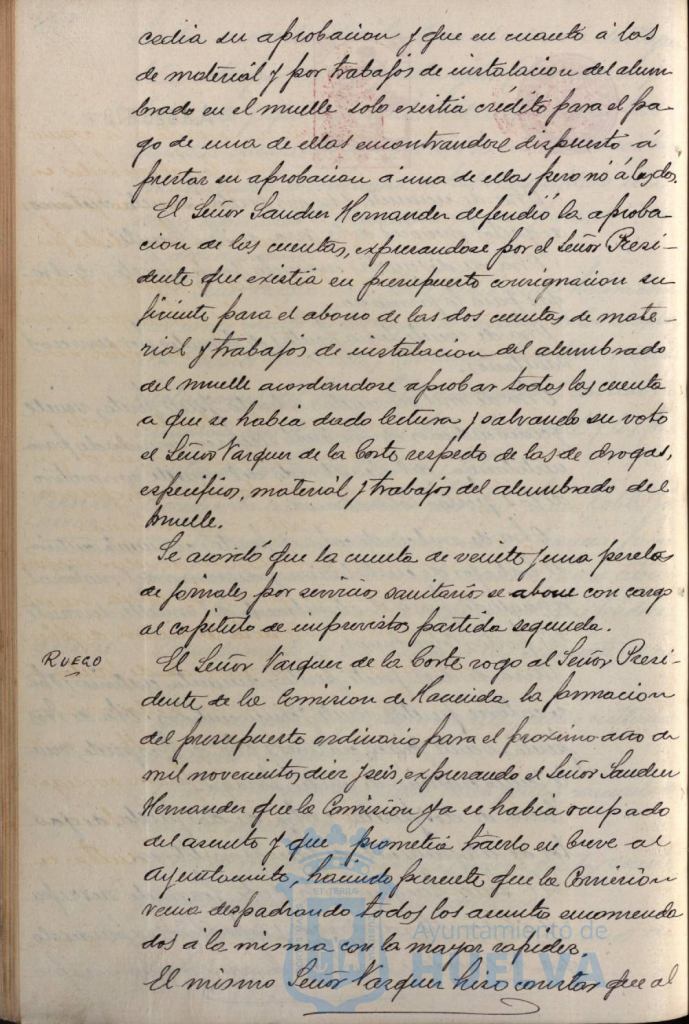 cedia su aprobacion y que en cuanto á las
de material y por trabajos de instalacion del alum-
brado en el muelle solo existia crédito para el pa-
go de una de ellas encontrandose dispuesto á
prestar su aprobacion á una de ellas pero nó á las dos.
El Señor Sanchez Hernandez defendió la aproba
cion de las cuentas, expresandose por el Señor Presi-
dente que existia en presupuesto consignacion su
ficiente para el abono de las dos cuentas de mate-
rial y trabajos de instalacion del alumbrado
del muelle acordandose aprobar todas las cuenta
a que se habia dado lectura y salvando su voto
el Señor Vazquez de la Corte respecto de las de drogas,
especificos, material y trabajos del alumbrado del
muelle.
Se acordó que la cuenta de veinte y una pesetas
de jornales por servicios sanitarios se abone con cargo
al capitulo de imprevistos partida segunda.
RUEGO
El Señor Vazquez de la Corte rogo al Señor Presi-
dente de la Comision de Hacienda la formacion
del presupuesto ordinario para el proximo año de
mil novecientos diez y seis, expresando el Señor Sanchez
Hernandez que la Comision ya se habia ocupado
del asunto y que prometia traerlo en breve al
Ayuntamiento, haciendo presente que la Comision
venia despachando todos los asuntos encomenda
dos á la misma con la mayor rapidez.
El mismo Señor Vazquez hizo constar que al
Ayuntamiento de
HUELVA